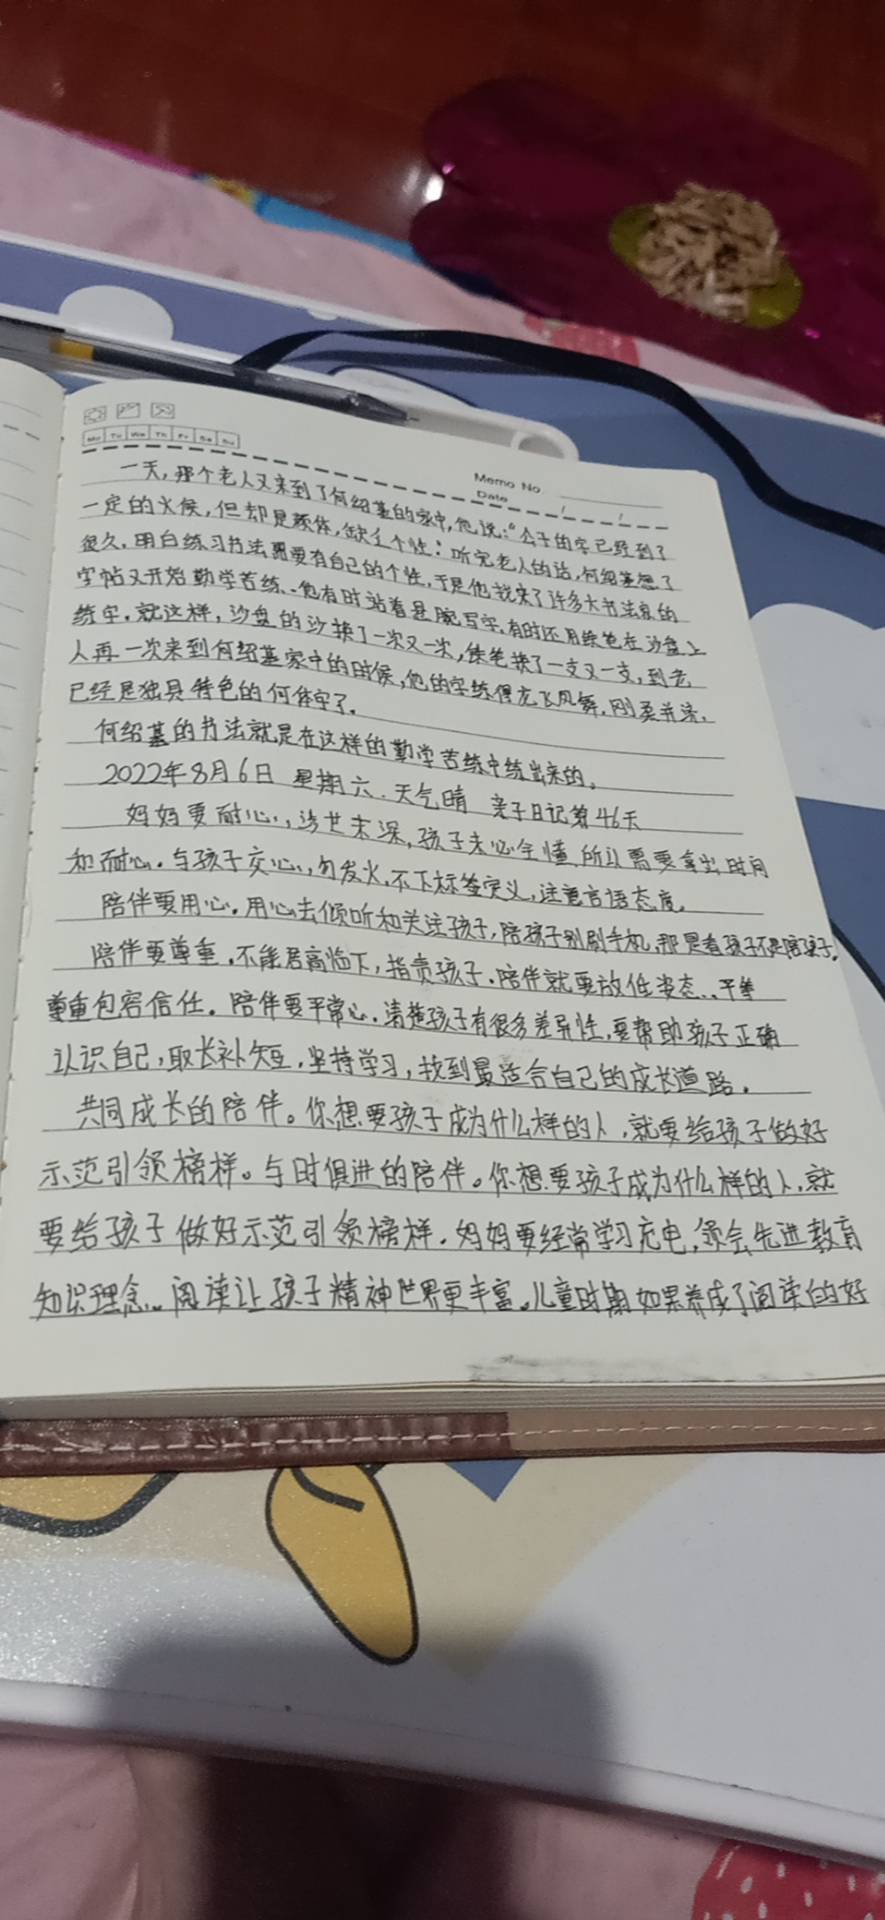 Mo Tu We Th Fr Sa Su
Memo No.
Date / /
一天,那个老人又来到了何绍基的家中,他说:“公子的字已经到了
一定的火候,但却是颜体,缺少个性!听完老人的话,何绍基想了
很久,明白练习书法需要有自己的个性,于是他找来了许多大书法家的
字帖又开始勤学苦练。他有时站着悬腕写字,有时还用铁笔在沙盘上
练字,就这样,沙盘的沙换了一次又一次,铁笔换了一支又一支,到老
人再一次来到何绍基家中的时候,他的字练得龙飞凤舞,刚柔并济,
已经是独具特色的何体字了。
何绍基的书法就是在这样的勤学苦练中练出来的。
2022年8月6日 星期六.天气晴 亲子日记第46天
妈妈要耐心,涉世未深,孩子未必全懂,所以需要拿出时间
和耐心。与孩子交心,勿发火,不下标签定义,注意言语态度。
陪伴要用心。用心去倾听和关注孩子,陪孩子别刷手机,那是看孩子不是陪孩子。
陪伴要尊重,不能居高临下,指责孩子.陪伴就要放低姿态,平等
尊重包容信任。陪伴要平常心.清楚孩子有很多差异性,要帮助孩子正确
认识自己,取长补短,坚持学习,找到最适合自己的成长道路。
共同成长的陪伴。你想要孩子成为什么样的人,就要给孩子做好
示范引领榜样。与时俱进的陪伴。你想要孩子成为什么样的人,就
要给孩子做好示范引领榜样.妈妈要经常学习充电,领会先进教育
知识理念。阅读让孩子精神世界更丰富。儿童时期如果养成了阅读的好